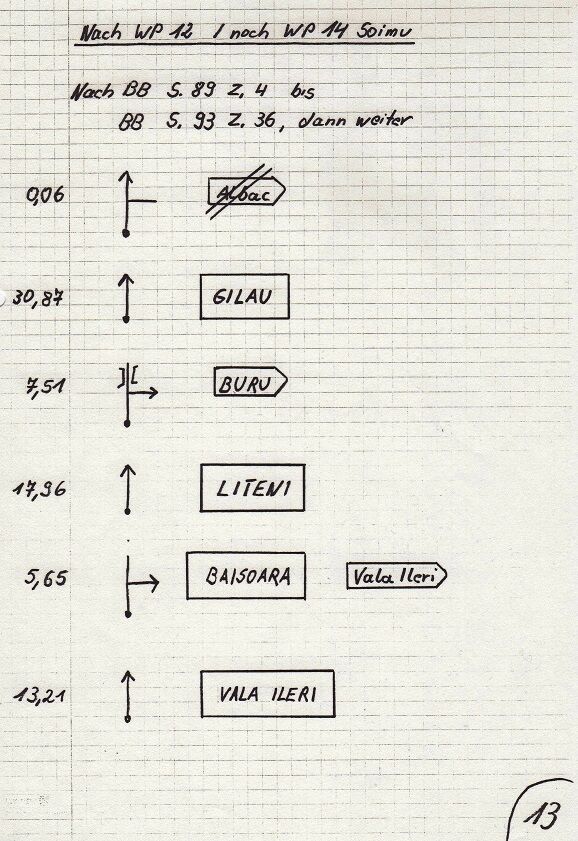 Nach WP 12 / nach WP 14 Soimu
Nach BB S. 89 Z. 4 bis
BB S. 93 Z. 36, dann weiter
0,06 Albac
30,87 GILAU
7,51 BURU
17,96 LITENI
5,65 BAISOARA Vala Ileri
13,21 VALA ILERI
13